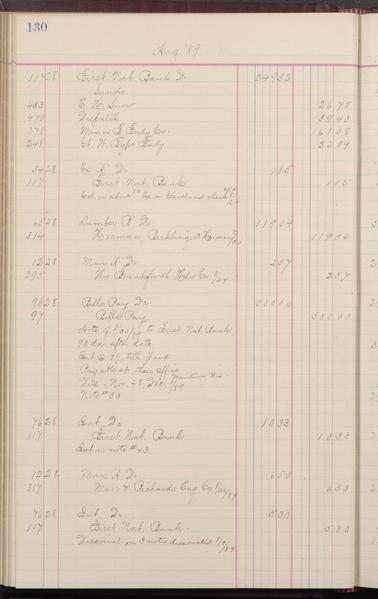 130
Aug '89
117 28 First Nat. Bank Dr 24933
Sunds
453 E. H. Snow 26 75
470 Dispatch 39 40
278 Minn E. Endy Co. 161 08
248 St. P. Type Fndy 22 09
34 28 Ex " Dr 1 05
117 First Nat. Bank 1 05
Col. on above Ex on Cleveland
65 28 Lumber " Dr 119 04
314 Herman 119 04
12 28 Man " Dr 2 57
295 Wm Frankfurth Hdw Co. 2 57
96 28 Bills Pay Dr 500 00
97 Bills Pay 500 00
Note of to First Nat. Bank
90 da. after date
Int @ 8% till paid
Payable at their office
Due Nov. 28, Dec. 1/89
Note # 53
76 28 Int. Dr 10 33
117 First Nat. Bank 10 33
Int on note # 43
12 28 Man " Dr 6 50
317 Marr & Richards Eng Co 6 50
76 28 Int. Dr 5 30
117 First Nat. Bank. 5 30
Discount on 3 notes discounted